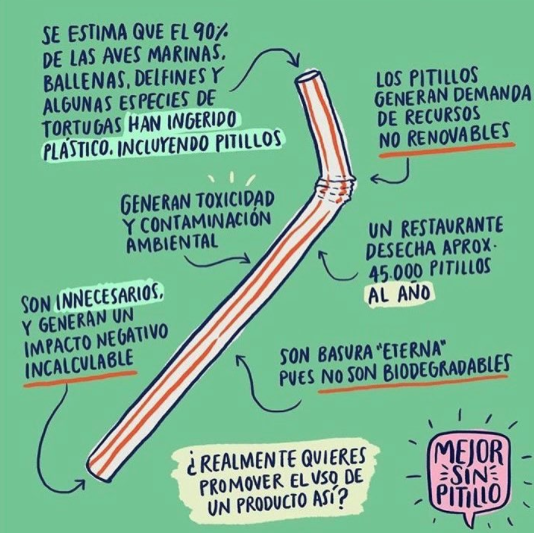 SE ESTIMA QUE EL 90%
DE LAS AVES MARINAS,
BALLENAS, DELFINES Y
ALGUNAS ESPECIES DE
TORTUGAS HAN INGERIDO
PLÁSTICO, INCLUYENDO PITILLOS
LOS PITILLOS
GENERAN DEMANDA
DE RECURSOS
NO RENOVABLES
GENERAN TOXICIDAD
Y CONTAMINACIÓN
AMBIENTAL
UN RESTAURANTE
DESECHA APROX.
45.000 PITILLOS
AL AÑO
SON INNECESARIOS,
Y GENERAN UN
IMPACTO NEGATIVO
INCALCULABLE
SON BASURA "ETERNA"
PUES NO SON BIODEGRADABLES
¿REALMENTE QUIERES
PROMOVER EL USO DE
UN PRODUCTO ASÍ?
MEJOR
SIN
PITILLO